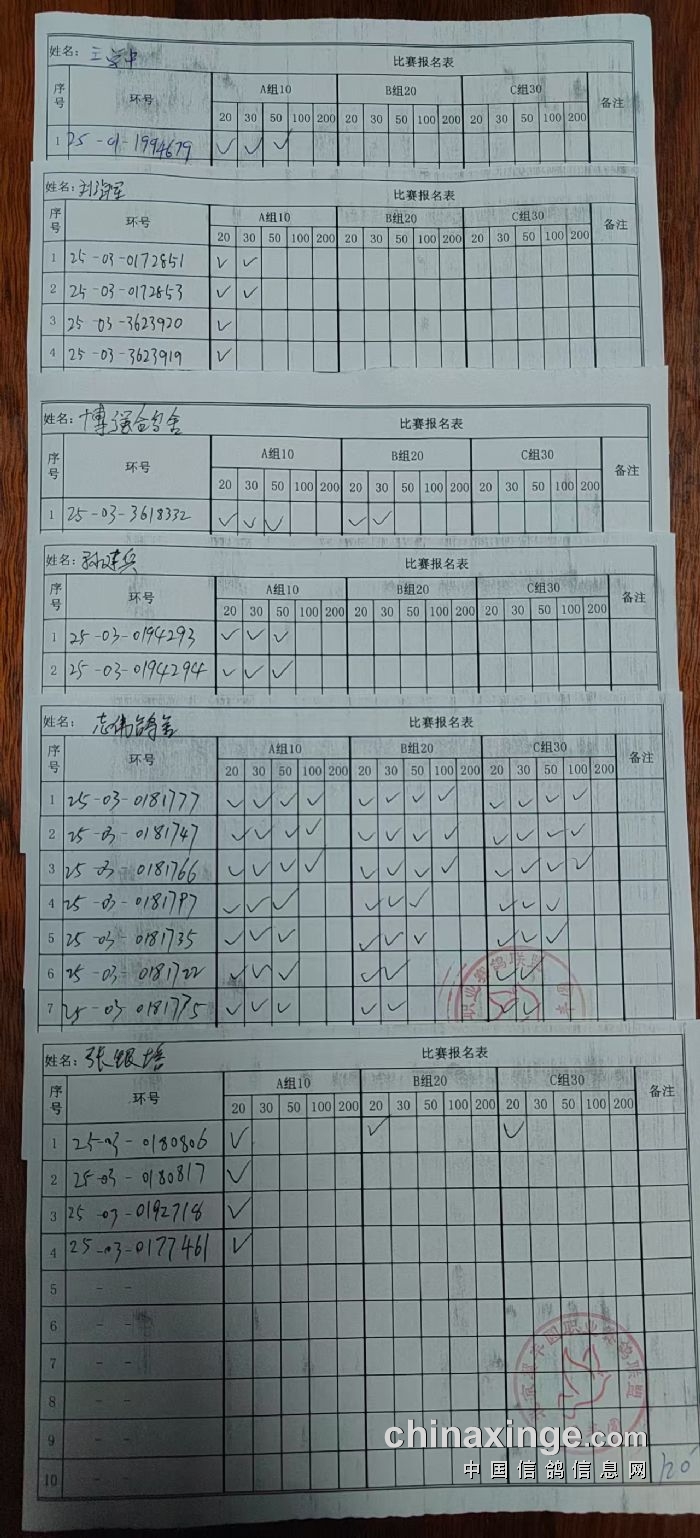 姓名: 王学中 比赛报名表
序号 环号 A组10 B组20 C组30 备注
20 30 50 100 200 20 30 50 100 200 20 30 50 100 200
1 25-01-1994679 ✓ ✓ ✓
姓名: 刘海军 比赛报名表
序号 环号 A组10 B组20 C组30 备注
20 30 50 100 200 20 30 50 100 200 20 30 50 100 200
1 25-03-0172851 ✓ ✓
2 25-03-0172853 ✓ ✓
3 25-03-3623920 ✓
4 25-03-3623919 ✓
姓名: 博强鸽舍 比赛报名表
序号 环号 A组10 B组20 C组30 备注
20 30 50 100 200 20 30 50 100 200 20 30 50 100 200
1 25-03-3618332 ✓ ✓ ✓ ✓ ✓
姓名: 孙建兵 比赛报名表
序号 环号 A组10 B组20 C组30 备注
20 30 50 100 200 20 30 50 100 200 20 30 50 100 200
1 25-03-0194293 ✓ ✓ ✓
2 25-03-0194294 ✓ ✓ ✓
姓名: 志伟鸽舍 比赛报名表
序号 环号 A组10 B组20 C组30 备注
20 30 50 100 200 20 30 50 100 200 20 30 50 100 200
1 25-03-0181777 ✓ ✓ ✓ ✓ ✓ ✓ ✓ ✓ ✓ ✓ ✓ ✓
2 25-03-0181747 ✓ ✓ ✓ ✓ ✓ ✓ ✓ ✓ ✓ ✓ ✓ ✓
3 25-03-0181766 ✓ ✓ ✓ ✓ ✓ ✓ ✓ ✓ ✓ ✓ ✓ ✓
4 25-03-0181797 ✓ ✓ ✓ ✓ ✓ ✓ ✓ ✓ ✓
5 25-03-0181735 ✓ ✓ ✓ ✓ ✓ ✓ ✓ ✓ ✓
6 25-03-0181722 ✓ ✓ ✓ ✓ ✓ ✓ ✓
7 25-03-0181775 ✓ ✓ ✓ ✓ ✓ ✓ ✓
职业赛鸽联盟
姓名: 张银塔 比赛报名表
序号 环号 A组10 B组20 C组30 备注
20 30 50 100 200 20 30 50 100 200 20 30 50 100 200
1 25-03-0180806 ✓ ✓ ✓
2 25-03-0180817 ✓
3 25-03-0192718 ✓
4 25-03-0177461 ✓
5 - -
6 - -
7 - -
8 - -
9 - -
10 - -
职业赛鸽联盟
120
chinaxinge.com
中国信鸽信息网